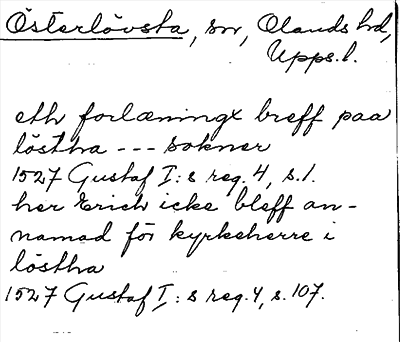 Österlövsta, sn, Olands hd,
Upps.l.
eth forlæningx breff paa
lösthа --- sokner
1527 Gustaf I:s reg. 4, s.1.
her Erich icke bleff an-
namad för kyrkeherre i
löstha
1527 Gustaf I:s reg. 4, s. 107.